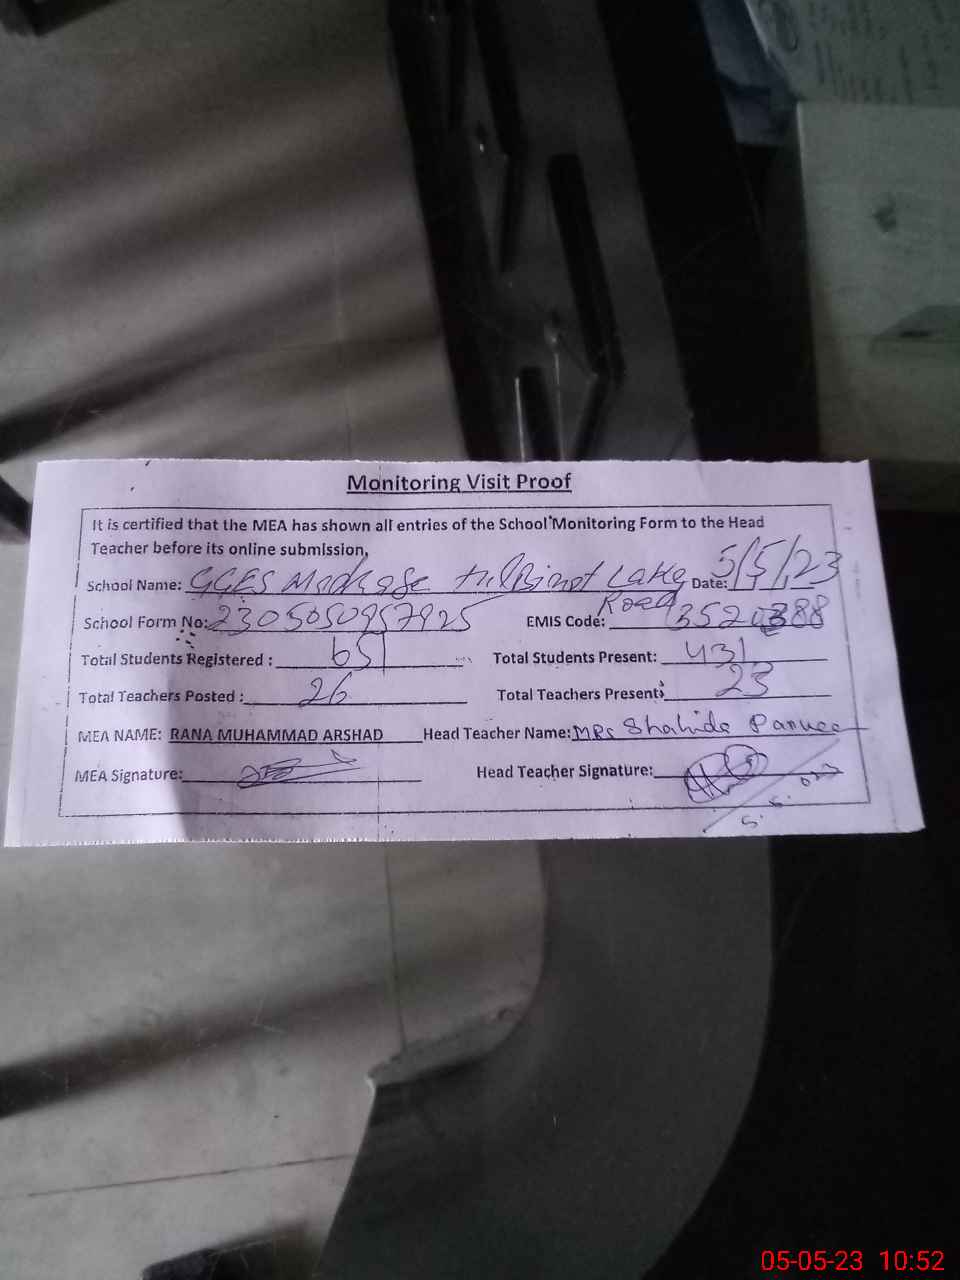 Monitoring Visit Proof
It is certified that the MEA has shown all entries of the School Monitoring Form to the Head
Teacher before its online submission,
School Name: GGES Lake Road Date: 5/5/23
School Form No: 2305050957925 EMIS Code: 3520388
Total Students Registered : 651 Total Students Present: 431
Total Teachers Posted : 26 Total Teachers Present: 23
MEA NAME: RANA MUHAMMAD ARSHAD Head Teacher Name: MRs Shahida
MEA Signature: Head Teacher Signature:
05-05-23 10:52